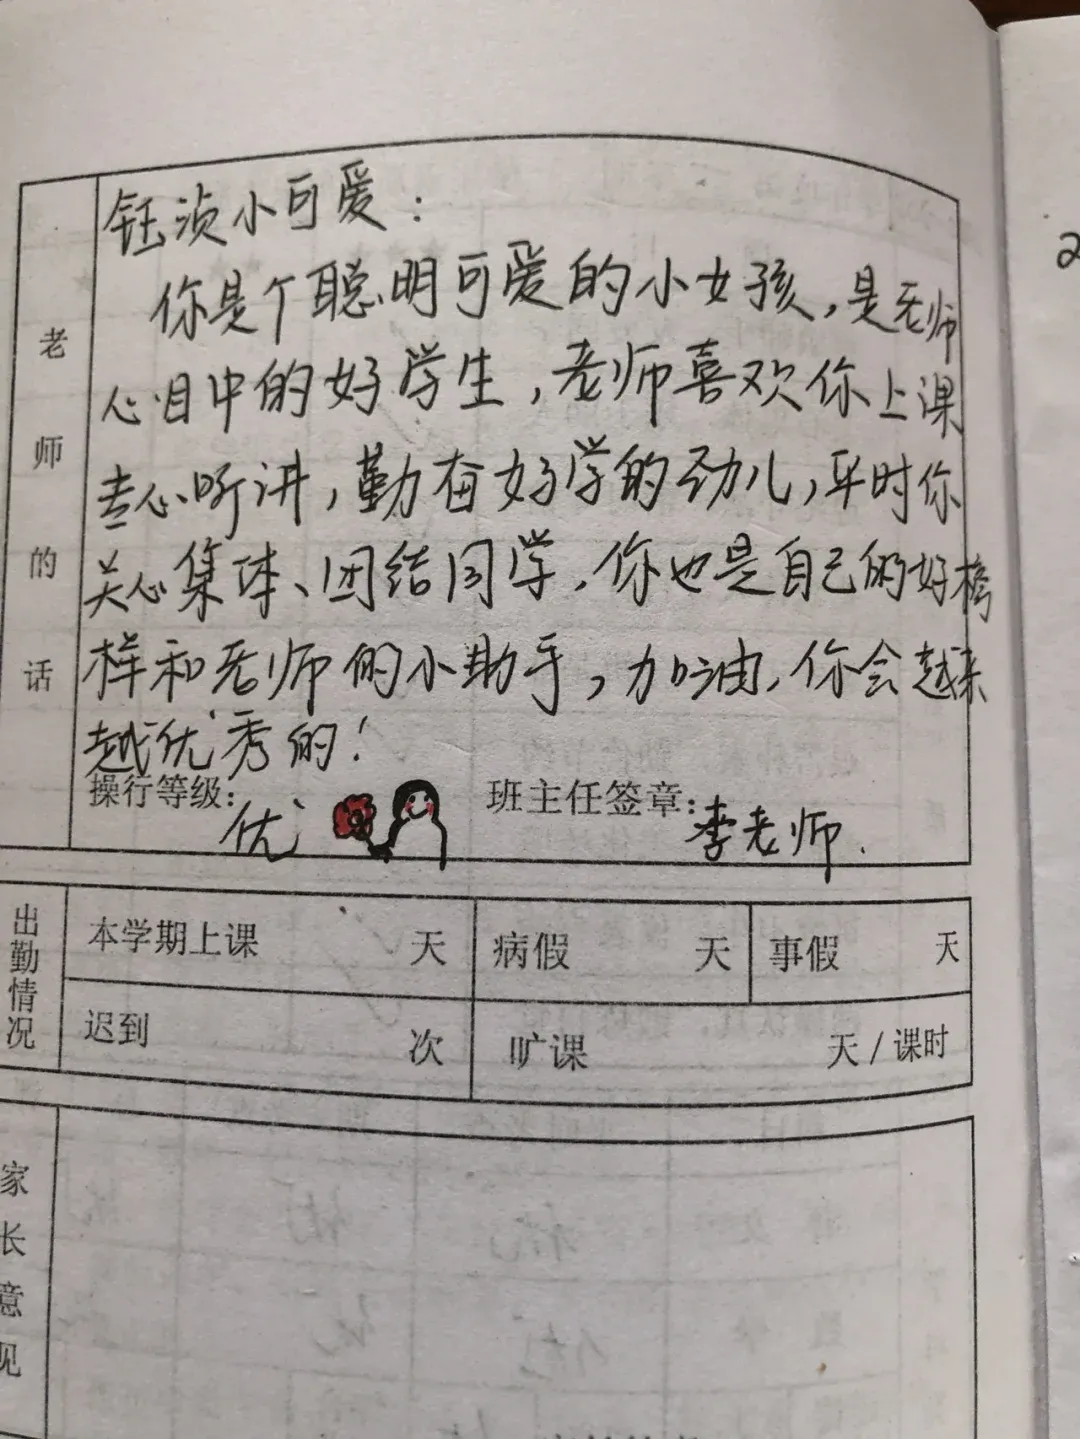 老师的话
钰浈小可爱：
你是个聪明可爱的小女孩，是老师
心目中的好学生，老师喜欢你上课
专心听讲，勤奋好学的劲儿，平时你
关心集体、团结同学，你也是自己的好榜
样和老师的小助手，加油，你会越来
越优秀的！
操行等级： 优 班主任签章：李老师.
出勤情况
本学期上课 天 病假 天 事假 天
迟到 次 旷课 天/课时
家长意见
2